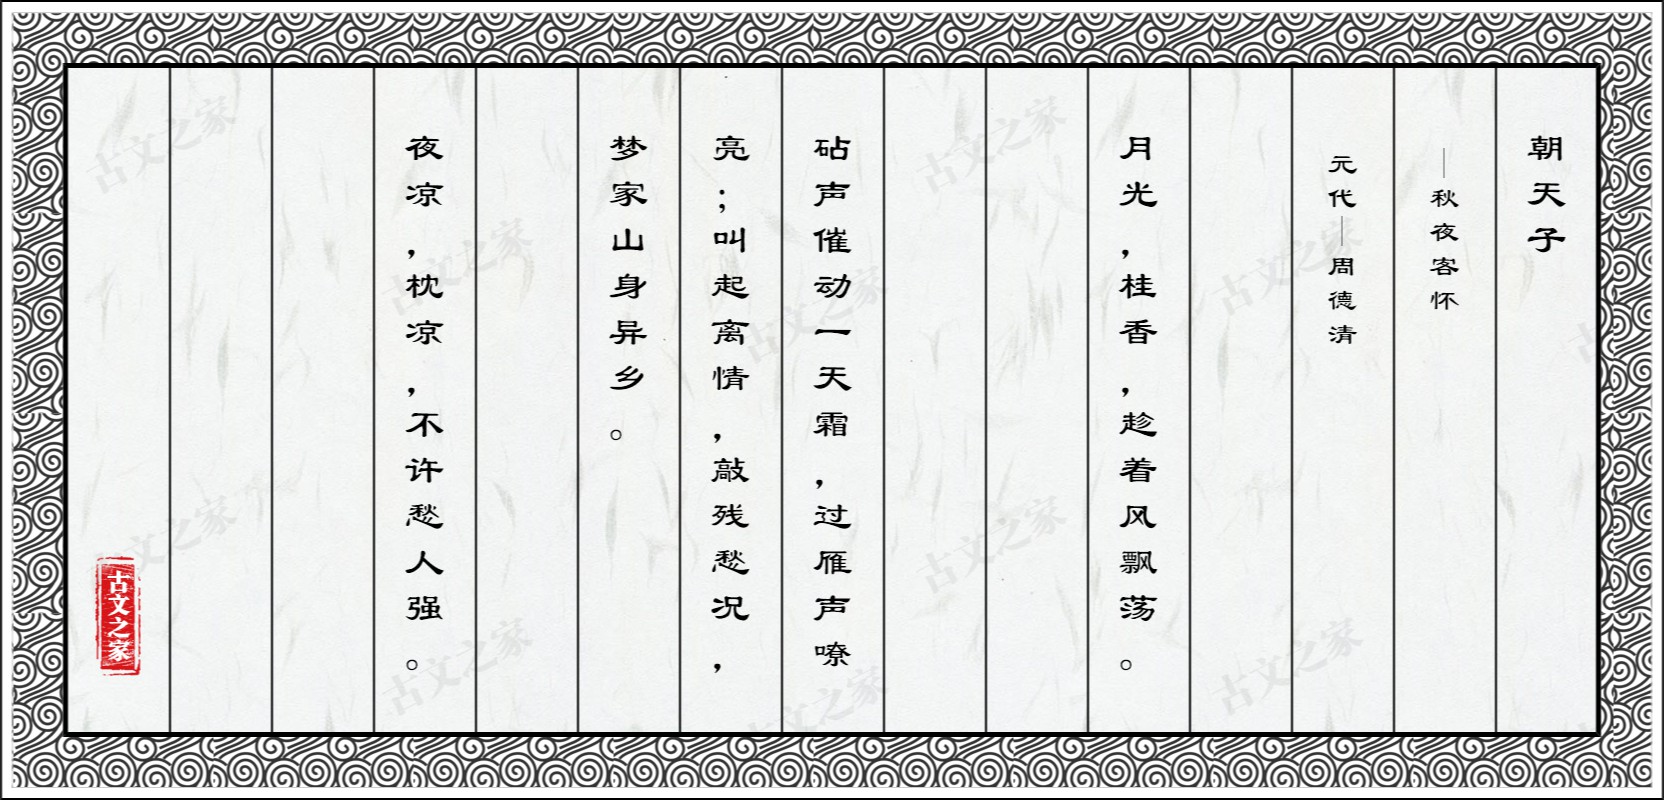 朝天子
—秋夜客怀
元代—周德清
月光，桂香，趁着风飘荡。
砧声催动一天霜，过雁声嘹
亮；叫起离情，敲残愁况，
梦家山身异乡。
夜凉，枕凉，不许愁人强。
古文之家